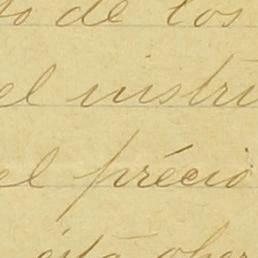 to de los
el instru
el précio
esta ober